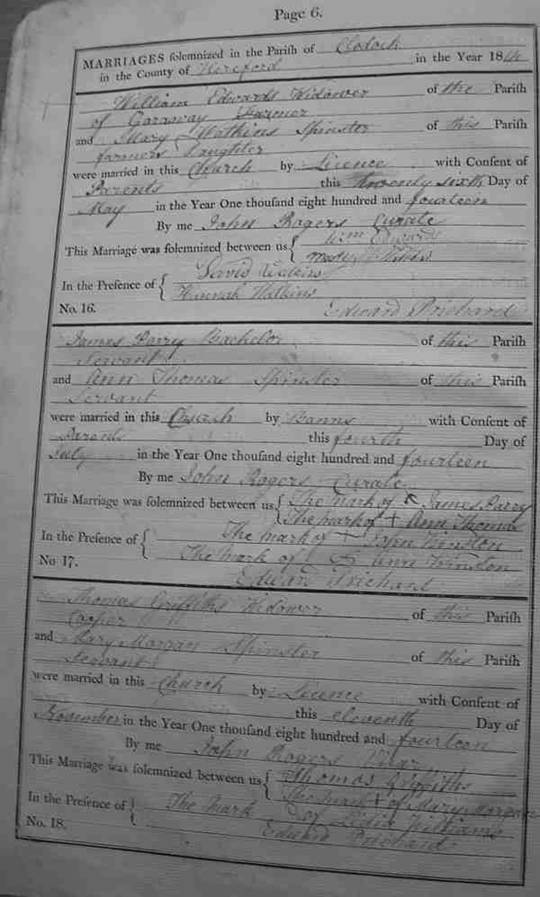 Page 6.
MARRIAGES solemnized in the Parish of Clodock
in the County of Hereford in the Year 1814
William Edwards Widower of the Parish
of Garaway Farmer
and Mary Watkins Spinster of this Parish
farmers Daughter
were married in this Church by Licence with Consent of
Parents this twenty sixth Day of
May in the Year One thousand eight hundred and fourteen
By me John Rogers Curate
This Marriage was solemnized between us { Wm Edwards
Mary Watkins
In the Presence of { David Watkins
Hannah Watkins
No. 16. Edward Prichard
James Parry Bachelor of this Parish
Servant
and Ann Thomas Spinster of this Parish
Servant
were married in this Church by Banns with Consent of
Parents this fourth Day of
July in the Year One thousand eight hundred and fourteen
By me John Rogers Curate
This Marriage was solemnized between us { The mark of X James Parry
The mark of + Ann Thomas
In the Presence of { The mark of + John
The mark of Ann
No 17. Edward Prichard
Thomas Griffiths Widower of this Parish
Cooper
and Mary Morgan Spinster of this Parish
Servant
were married in this Church by Licence with Consent of
this eleventh Day of
November in the Year One thousand eight hundred and fourteen
By me John Rogers Vicar
This Marriage was solemnized between us { Thomas Griffiths
The mark + of Mary Morgan
In the Presence of { The mark of Williams
No. 18. Edward Prichard